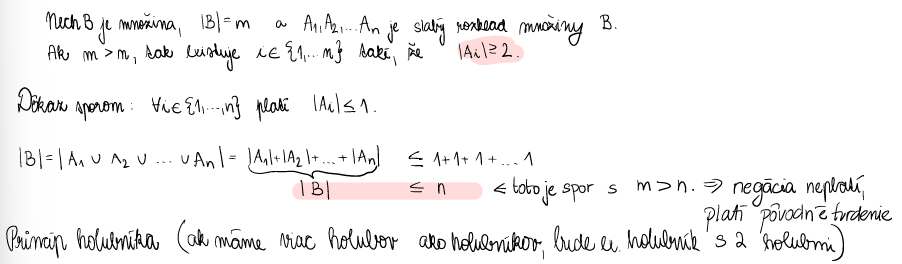 Nech B je množina, |B|=m a A₁,A₂,...Aₙ je slabý rozklad množiny B.
Ak m>n, tak existuje i∈{1,...n} také, že |Aᵢ|≥2.
Dôkaz sporom: ∀i∈{1,...,n} platí |Aᵢ|≤1.
|B|=|A₁∪A₂∪...∪Aₙ|=|A₁|+|A₂|+...+|Aₙ| ≤ 1+1+1+...1
|B| ≤ n ← toto je spor s m>n. ⇒ negácia neplatí,
platí pôvodné tvrdenie
Princíp holubníka (ak máme viac holubov ako holubníkov, bude ex. holubník s 2 holubmi)